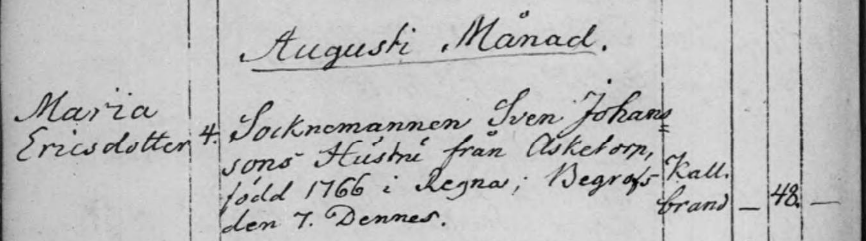 Augusti Månad.
Maria
Ericsdotter
4.
Socknemannen Sven Johans=
sons Hustru från Asketorp,
född 1766 i Regna; Begrofs
den 7. Dennes.
Kall.
brand — 48. —